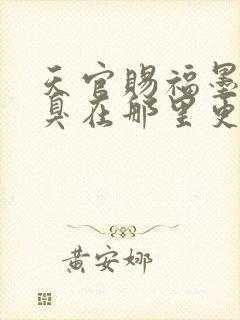 天官赐福墨
真在那里更
黄安娜